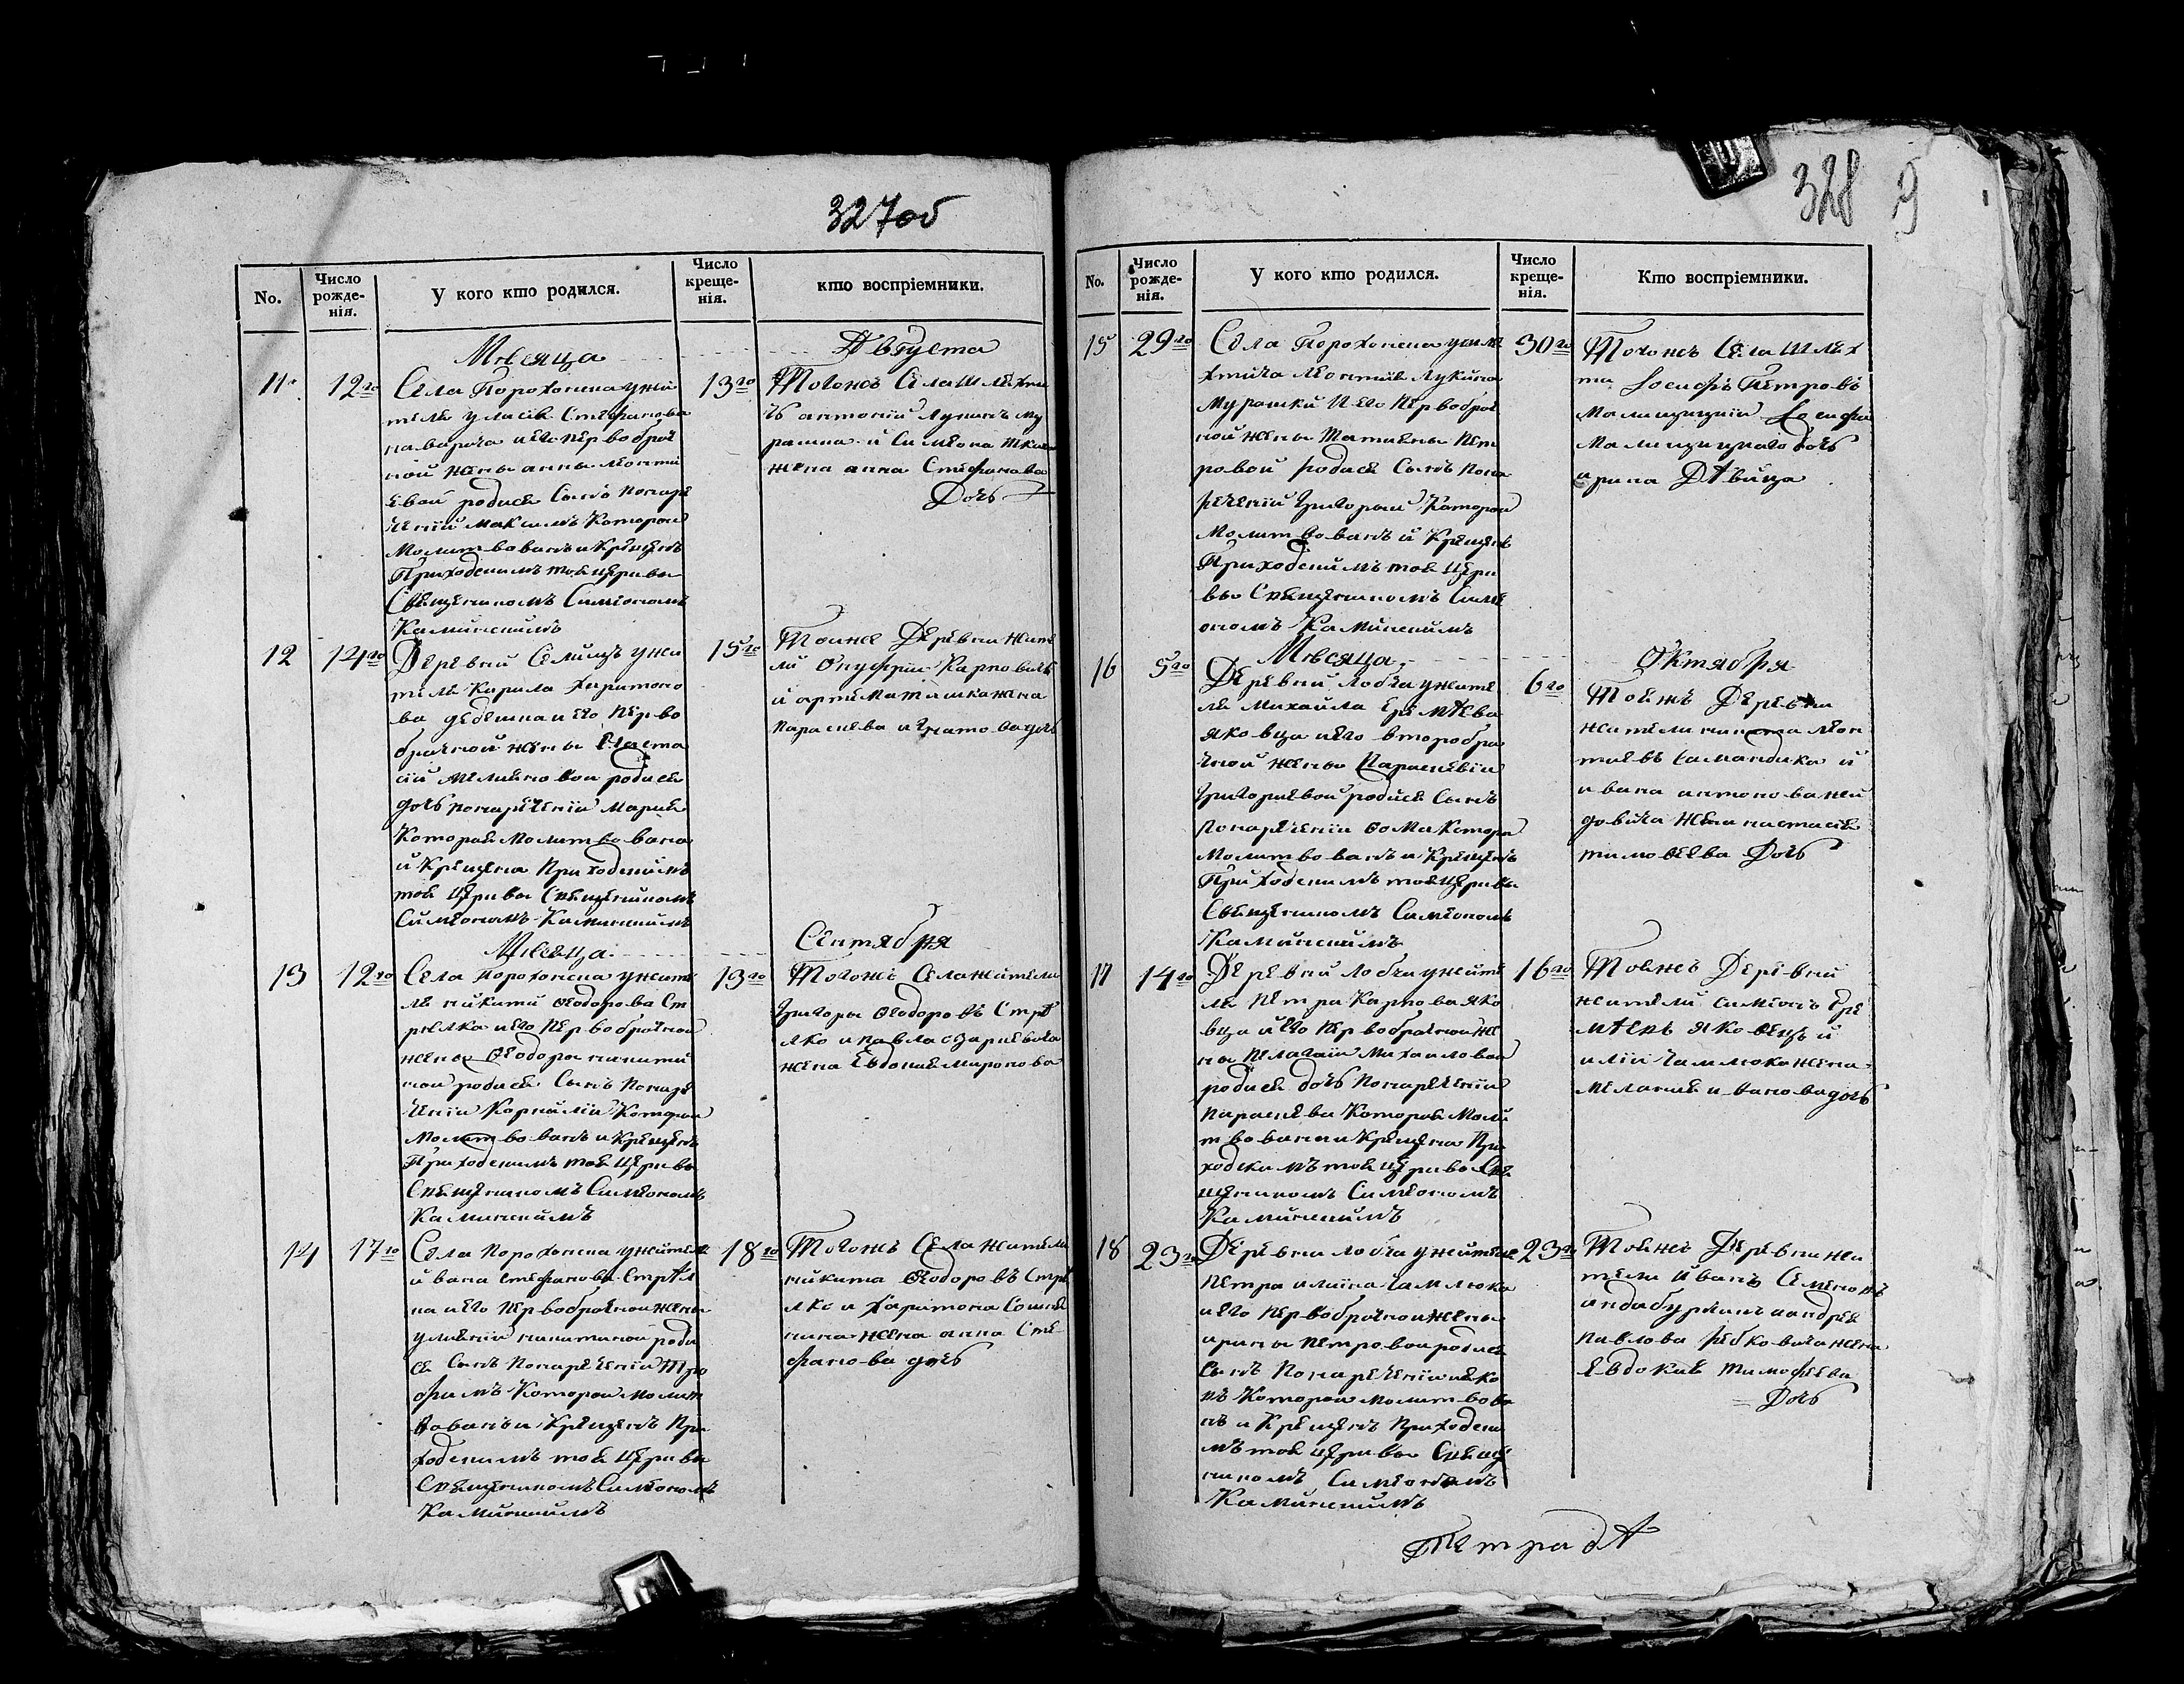 327об
No.
Число рожде-нія.
У кого кто родился.
Число креще-нія.
кто воспріемники.
Мѣсяца Августа
11 12го 13го
Села Порохонска ужи
теля Уласія Стефанова
на варича иего первобрач
ной жены анны леонти
евой родися Сынъ Понаре
ченій Максимъ Которои
Молитвованъ и Крещенъ
Приходскимъ тоя церкви
Священикомъ Симеономъ
Каминскимъ
Тогожъ Села Шляхти
чъ антоній Лукинъ му
рашка и Симеона
жена анна Стефанова
Дочь
12 14го 15го
Деревни Селищъ ужи
теля Кирила Харитоно
ва дебешка и его перво
брачной жены Наста
сіи Мелияновои родися
дочь понареченіи Марія
Которая Молитвована
и Крещена Приходскимъ
тоя Церкви Священикомъ
Симеономъ Каминскимъ
Тояже Деревни жите
ли Онуфрій Карповичъ
и артема жена
Параскева игнатова дочь
Мѣсяца Сентября
13 12го 13го
Села порохонска ужите
ля никити Феодорова Ст
рѣлка иего первобрачнои
жены Феодоры никити
ной родися Сынъ Понаре
ченіи Корнилій Которои
Молитвованъ и Крещенъ
Приходскимъ тоя Церкви
Священикомъ Симеономъ
Каминскимъ
Тогожъ Села жители
Григоры Феодоровъ Стрѣ
лко и павла
жена Евдокия миронова
14 17го 18го
Села порохонска ужителя
ивана стефанова Стрѣл
ка иего первобрачнои жены
улиянии никитиной роди
ся Сынъ Понареченіи Тро
фимъ Которои молит
вованъ и Крещенъ При
ходскимъ тоя Церкви
Священикомъ Симеономъ
Каминскимъ
Тогожъ Села жители
никита Феодоровъ Стрѣ
лко и Харитона
жена анна Сте
фанова дочь
328 9
No.
Число рожде-нія.
У кого кто родился.
Число креще-нія.
Кто воспріемники.
15 29го 30го
Села Порохонска ушля
хтича леонтия Лукина
Мурашки И его первобрач
ной жены Татияны Пет
ровой родися Сынъ Пона
реченій Григорій Которои
Молитвованъ и Крещенъ
Приходскимъ тоя Церк
вы Священикомъ Симе
ономъ Каминскимъ
Тогожъ Села Шлях
та Іосифъ Петровъ
Малищицкій Іосифа
Малищицкаго дочь
ирина Дѣвица
Мѣсяца Октября
16 5го 6го
Деревни лобча ужите
ля Михайла Еремѣева
яковца иего второбра
чной жены Параскевіи
Григориевой родися Сынъ
Понареченіи Фома Которои
Молитвованъ и Крещенъ
Приходскимъ тоя Церквы
Священикомъ Симеономъ
Каминскимъ
Тояжъ Деревни
жители никита леон
тиевъ и
ивана антонова
довича жена настасия
тимофеева Дочь
17 14го 16го
Деревни лобчи ужите
ля Петра Карпова яко
вца и его первобрачной же
ны Пелагіи Михайловой
родися дочь Понареченіи
Параскева Которая Моли
твована и Крещена При
ходскимъ тоя Церквы Свя
щеникомъ Симеономъ
Каминскимъ
Тояжъ Деревни
жители Симеонъ Ере
мѣевъ яковецъ и
иліи чамлюка жена
Мелания иванова дочь
18 23го 23го
Деревни лобча ужителя
Петра илиина чамлюка
иего первобрачной жены
ирины Петровои родися
Сынъ Понареченіи Иако
въ Которои молитвова
нъ и Крещенъ Приходски
мъ тоя церквы Священ
никомъ Симеономъ
Каминскимъ
Тояжъ Деревни жи
тели Иванъ Семеновъ
андабурашъ иандрея
павлова жена
Евдокия Тимофеева
Дочь
Петра дѣ